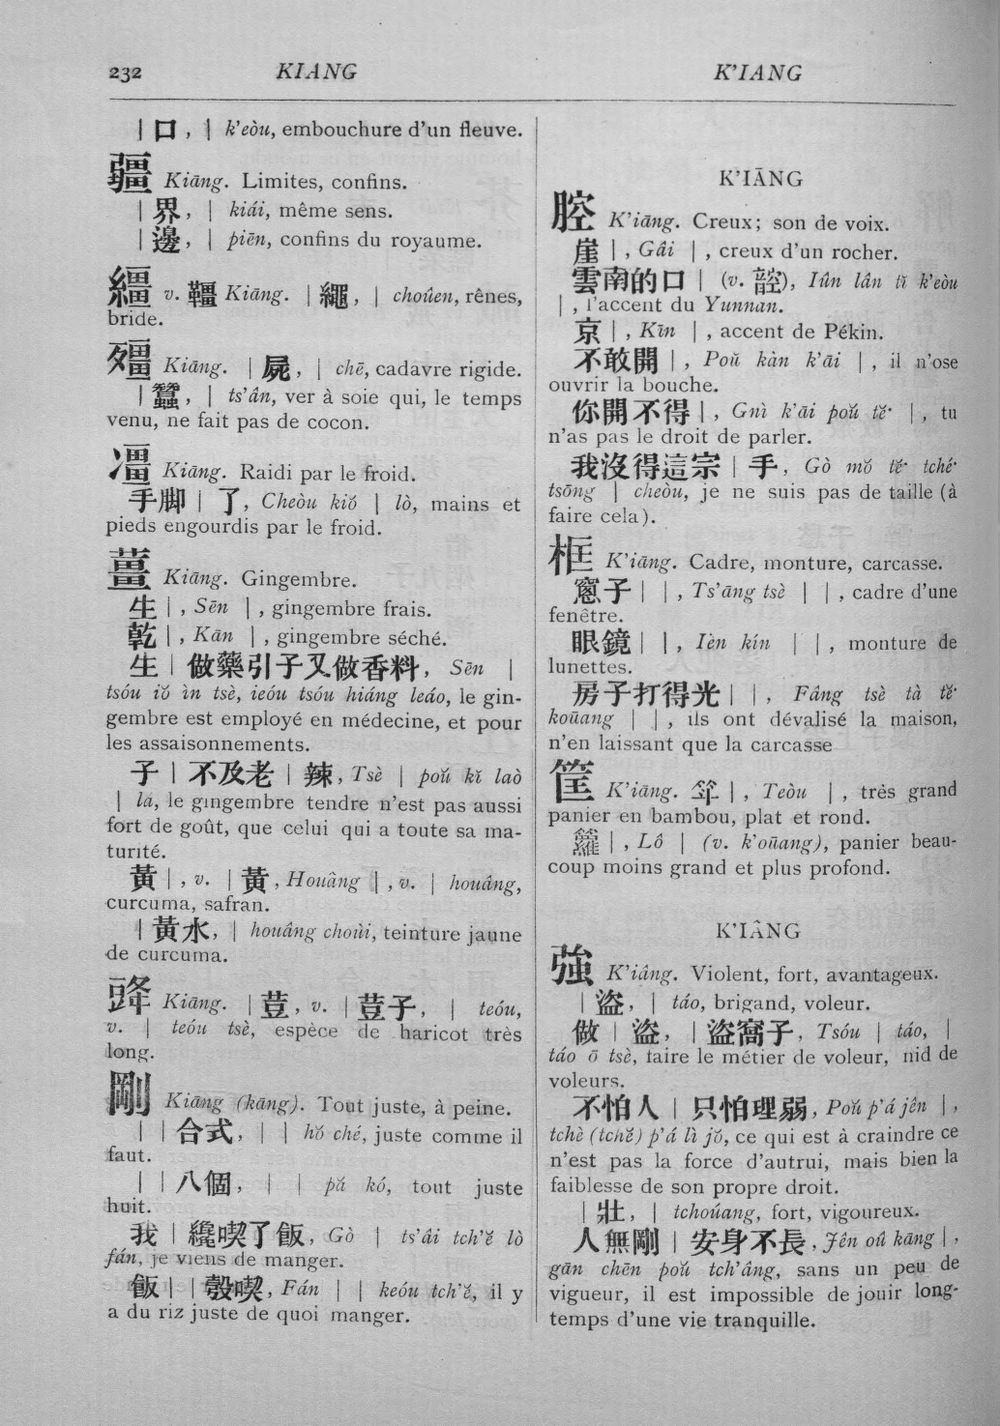 232 KIANG K’IANG
| 口, | k’eòu, embouchure d’un fleuve.
疆 Kiāng. Limites, confins.
| 界, | kiái, même sens.
| 邊, | piēn, confins du royaume.
繮 v. 韁 Kiāng. | 繩, | choûen, rênes,
bride.
殭 Kiāng. | 屍, | chē, cadavre rigide.
| 蠶, | ts’ân, ver à soie qui, le temps
venu, ne fait pas de cocon.
Kiāng. Raidi par le froid.
手脚 | 了, Cheòu kiŏ | lò, mains et
pieds engourdis par le froid.
薑 Kiāng. Gingembre.
生 | , Sēn | , gingembre frais.
乾 | , Kān | , gingembre séché.
生 | 做藥引子又做香料, Sēn |
tsóu iŏ ìn tsè, ieóu tsóu hiáng leáo, le gin-
gembre est employé en médecine, et pour
les assaisonnements.
子 | 不及老 | 辣, Tsè | poŭ kĭ laò
| lá, le gingembre tendre n’est pas aussi
fort de goût, que celui qui a toute sa ma-
turité.
黃 | , v. | 黃, Houâng | , v. | houâng,
curcuma, safran.
| 黃水, | houâng choùi, teinture jaune
de curcuma.
Kiāng. | 荳, v. | 荳子, | teóu,
v. | teóu tsè, espèce de haricot très
long.
剛 Kiāng (kāng). Tout juste, à peine.
| | 合式, | | hŏ ché, juste comme il
faut.
| | 八個, | | pă kó, tout juste
huit.
我 | 纔喫了飯, Gò | ts’âi tch’ĕ lò
fán, je viens de manger.
飯 | | 彀喫, Fán | | keóu tch’ĕ, il y
a du riz juste de quoi manger.
K’IĀNG
腔 K’iāng. Creux; son de voix.
崖 | , Gâi | , creux d’un rocher.
雲南的口 | (v. ), Iûn lân tĭ k’eòu
| , l’accent du Yunnan.
京 | , Kīn | , accent de Pékin.
不敢開 | , Poŭ kàn k’āi | , il n’ose
ouvrir la bouche.
你開不得 | , Gnì k’āi poŭ tĕ· | , tu
n’as pas le droit de parler.
我沒得這宗 | 手, Gò mŏ tĕ· tché·
tsōng | cheòu, je ne suis pas de taille (à
faire cela).
框 K’iāng. Cadre, monture, carcasse.
窻子 | | , Ts’āng tsè | | , cadre d’une
fenêtre.
眼鏡 | | , Ièn kín | | , monture de
lunettes.
房子打得光 | | , Fâng tsè tà tĕ·
koūang | | , ils ont dévalisé la maison,
n’en laissant que la carcasse
筐 K’iāng. | , Teòu | , très grand
panier en bambou, plat et rond.
籮 | , Lô | (v. k’oūang), panier beau-
coup moins grand et plus profond.
K’IÂNG
強 K’iâng. Violent, fort, avantageux.
| 盜, | táo, brigand, voleur.
做 | 盜, | 盜窩子, Tsóu | táo, |
táo ō tsè, faire le métier de voleur, nid de
voleurs.
不怕人 | 只怕理弱, Poŭ p’á jên | ,
tchè (tchĕ) p’á lì jŏ, ce qui est à craindre ce
n’est pas la force d’autrui, mais bien la
faiblesse de son propre droit.
| 壯, | tchoúang, fort, vigoureux.
人無剛 | 安身不長, Jên oû kāng | ,
gān chēn poŭ tch’âng, sans un peu de
vigueur, il est impossible de jouir long-
temps d’une vie tranquille.